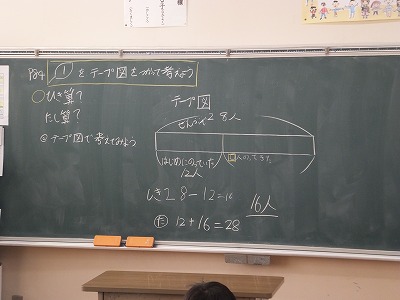 P84 ① をテープ図をつかって考えよう
○ひき算?
たし算?
◎テープ図で考えてみよう
テープ図
ぜんぶで28人
はじめにのっていた
12人
□人のってきた
しき28-12=16
16人
た 12+16=28
様